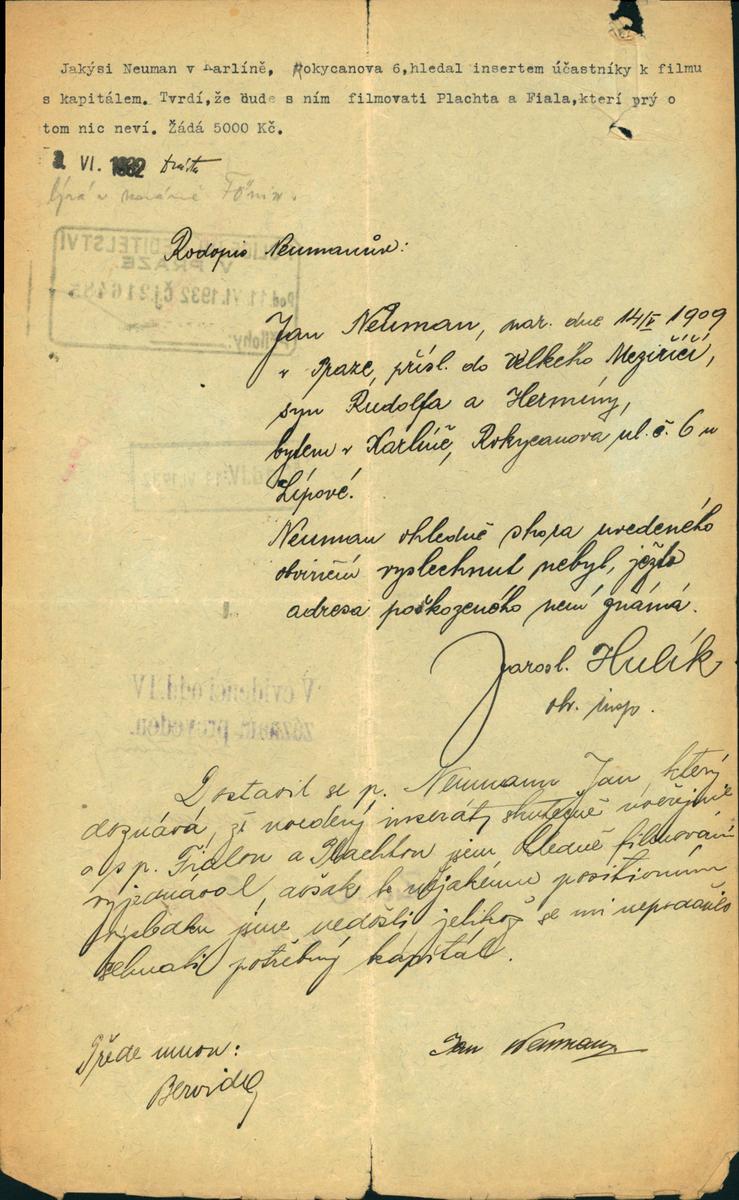 Jakýsi Neuman v Karlíně, Rokycanova 6,hledal insertem účastníky k filmu
s kapitálem. Tvrdí,že bude s ním filmovati Plachta a Fiala,kteří prý o
tom nic neví. Žádá 5000 Kč.
VI. 1932
Rodopis Neumanův:
Jan Neuman, nar. dne 14/V 1909
v Praze, přísl. do Velkého Meziříčí,
syn Rudolfa a Hermíny,
bytem v Karlíně, Rokycanova ul. č. 6 u
Lípové.
Neuman ohledně shora uvedeného
obvinění vyslechnut nebyl, ježto
adresa poškozeného není známá.
Jarosl. Hulík
obv. insp.
Dostavil se p. Neumann Jan, který
doznává, že uvedený inserát skutečně uveřejnil
a s p. Fialou a Plachtou jsem ohledně filmování
vyjednával, avšak k nějakému positivnímu
výsledku jsme nedošli jelikož se mi nepodařilo
sehnati potřebný kapitál.
Přede mnou:
Jan Neumann
POLICEJNÍ ŘEDITELSTVÍ
V PRAZE
Pod. 11. VI. 1932 Čj. 216485
Přílohy:
V evidenci odd. IV
zázn. proveden.